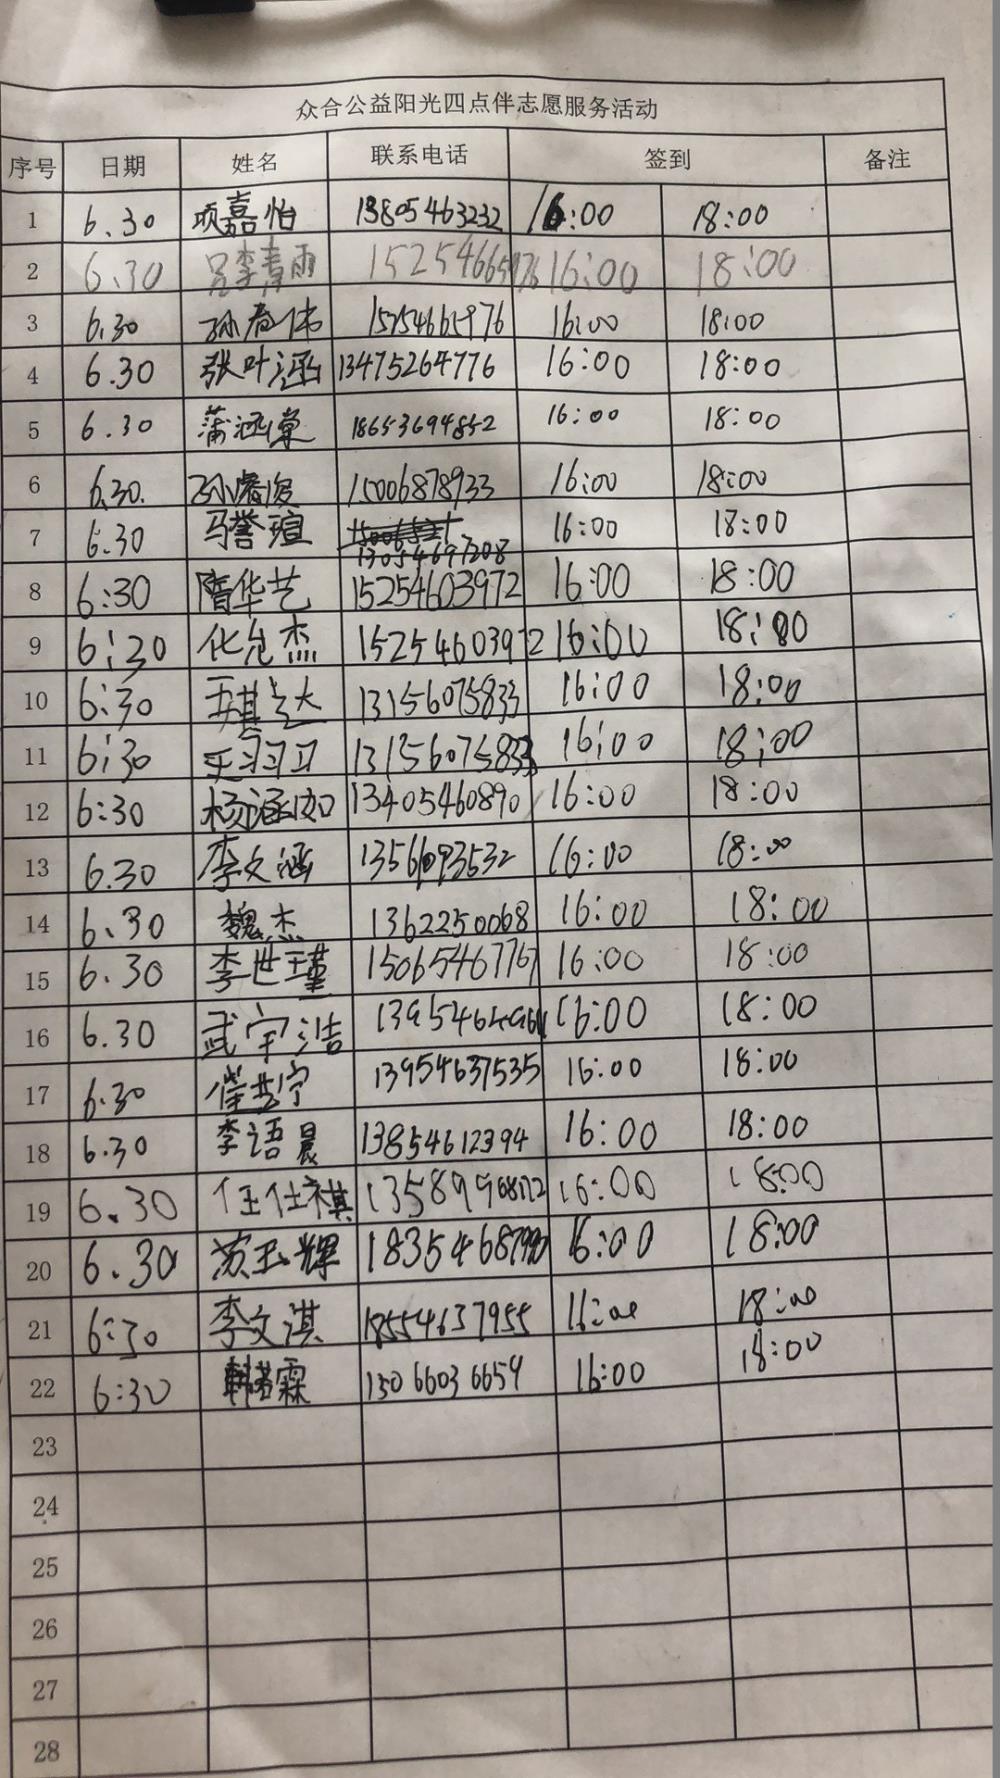 众合公益阳光四点伴志愿服务活动
序号 日期 姓名 联系电话 签到 备注
1 6.30 项嘉怡 13805463232 16:00 18:00
2 6.30 李青雨 16:00 18:00
3 6.30 孙春伟 16:00 18:00
4 6.30 张叶涵 13475264776 16:00 18:00
5 6.30 蒲涵棠 18653694852 16:00 18:00
6 6.30. 孙睿俊 15006878933 16:00 18:00
7 6.30 马誉瑄 13054697208 16:00 18:00
8 6:30 隋华艺 15254603972 16:00 18:00
9 6:30 化允杰 15254603972 16:00 18:00
10 6:30 13156075833 16:00 18:00
11 6:30 13156075833 16:00 18:00
12 6:30 杨涵如 13405460890 16:00 18:00
13 6.30 李文涵 16:00 18:00
14 6.30 魏杰 1362250068 16:00 18:00
15 6.30 李世瑾 15065467767 16:00 18:00
16 6.30 武宇浩 16:00 18:00
17 6.30 13954637535 16:00 18:00
18 6.30 李语晨 13854612394 16:00 18:00
19 6.30 任仕祺 16:00 18:00
20 6.30 苏玉辉 16:00 18:00
21 6:30 李文淇 18554637955 16:00 18:00
22 6:30 韩若霖 15066036659 16:00 18:00
23
24
25
26
27
28